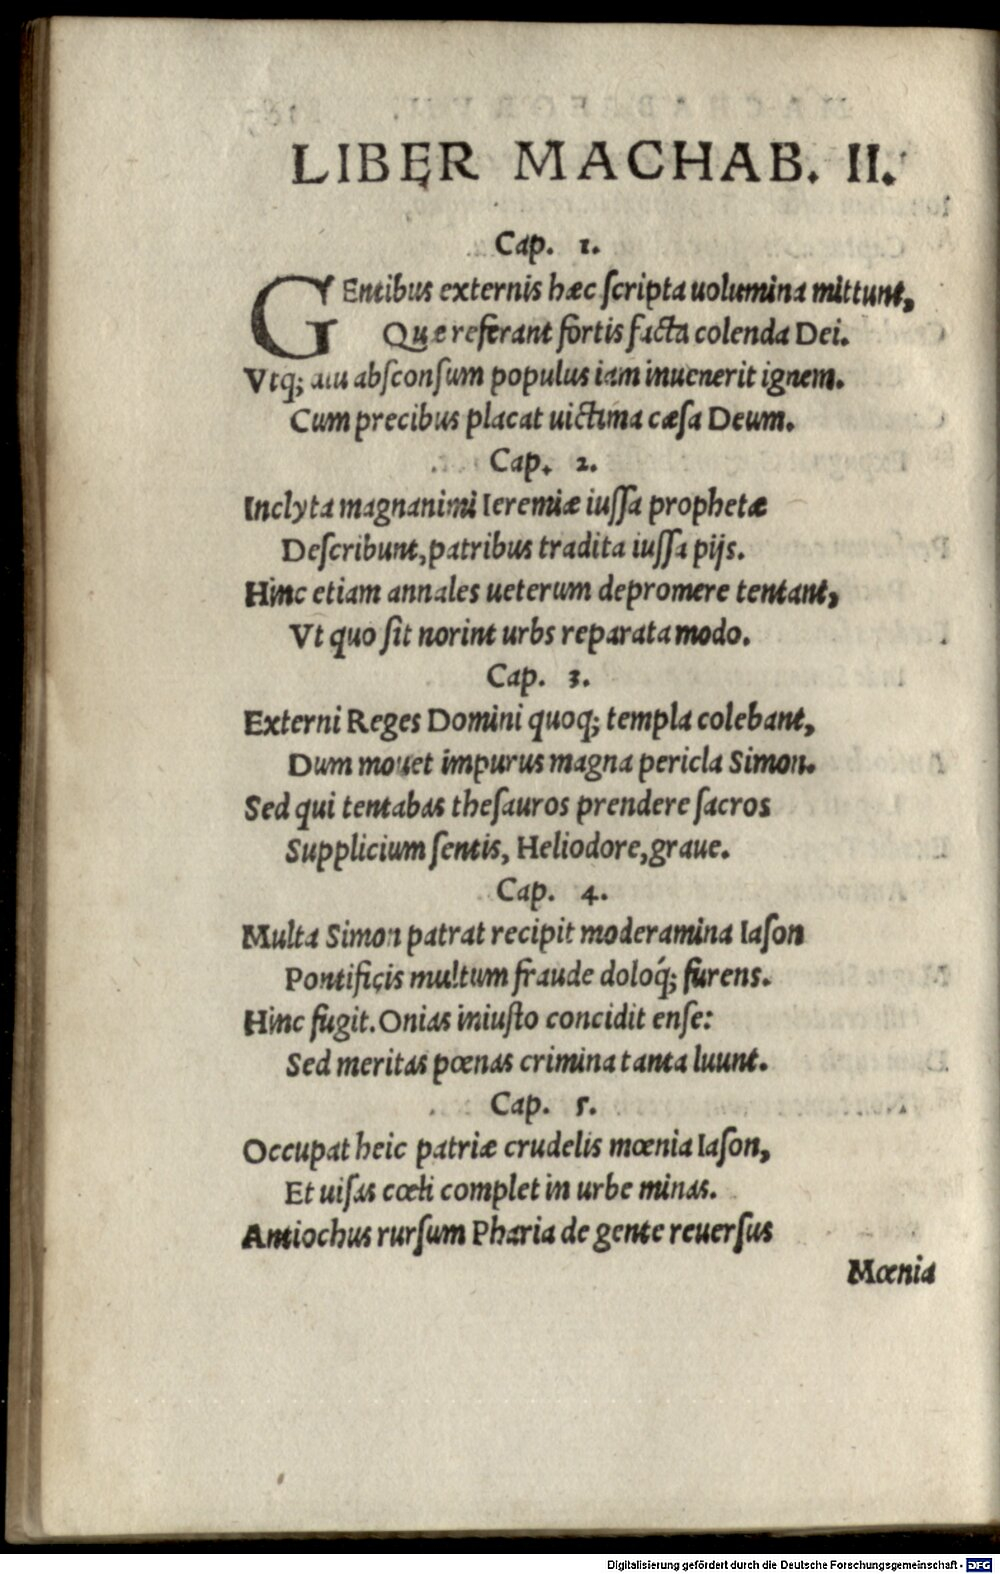 LIBER MACHAB. II.
Cap. 1.
GEntibus externis hæc ſcripta uolumina mittunt,
Quæ referant fortis facta colenda Dei.
Vtq; diu abſconſum populus iam inuenerit ignem.
Cum precibus placat uictima cæſa Deum.
Cap. 2.
Inclyta magnanimi Ieremiæ iuſſa prophetæ
Deſcribunt, patribus tradita iuſſa pijs.
Hinc etiam annales ueterum depromere tentant,
Vt quo ſit norint urbs reparata modo.
Cap. 3.
Externi Reges Domini quoq; templa colebant,
Dum mouet impurus magna pericla Simon.
Sed qui tentabas theſauros prendere ſacros
Supplicium ſentis, Heliodore, graue.
Cap. 4.
Multa Simon patrat recipit moderamina Iaſon
Pontificis multum fraude doloq́; furens.
Hinc fugit. Onias iniuſto concidit enſe:
Sed meritas pœnas crimina tanta luunt.
Cap. 5.
Occupat heic patriæ crudelis mœnia Iaſon,
Et uiſas cœli complet in urbe minas.
Antiochus rurſum Pharia de gente reuerſus
Mœnia
Digitalisierung gefördert durch die Deutsche Forschungsgemeinschaft - DFG